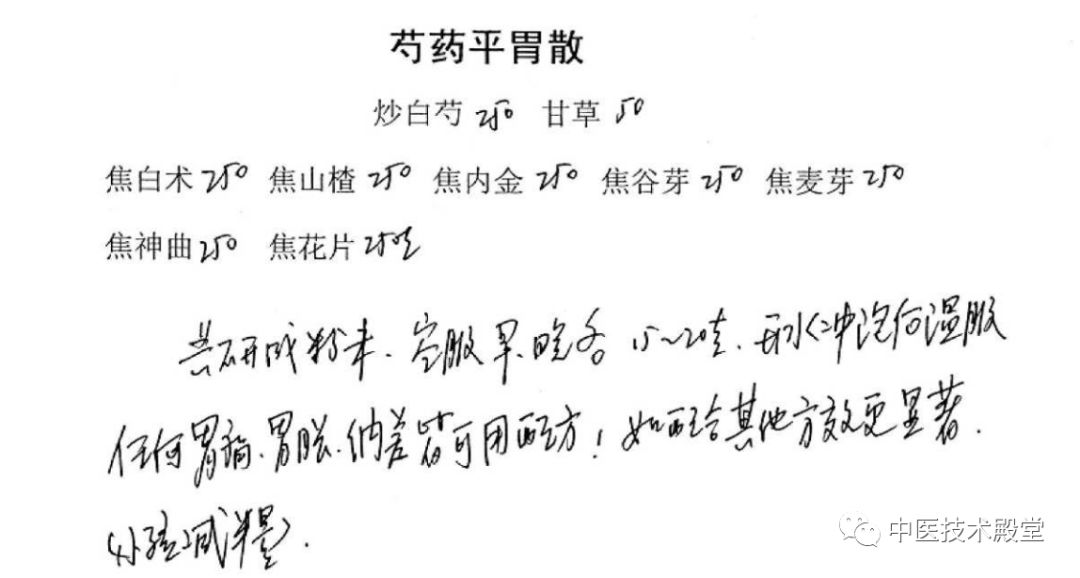 芍药平胃散
炒白芍250 甘草50
焦白术250 焦山楂250 焦内金250 焦谷芽250 焦麦芽250
焦神曲250 焦花片250克
共研成粉末、空服早、晚各15~20克、开水冲泡后温服
任何胃痛、胃胀、纳差皆可用此方！如配合其他方效更显著.
(小孩减半量).
中医技术殿堂